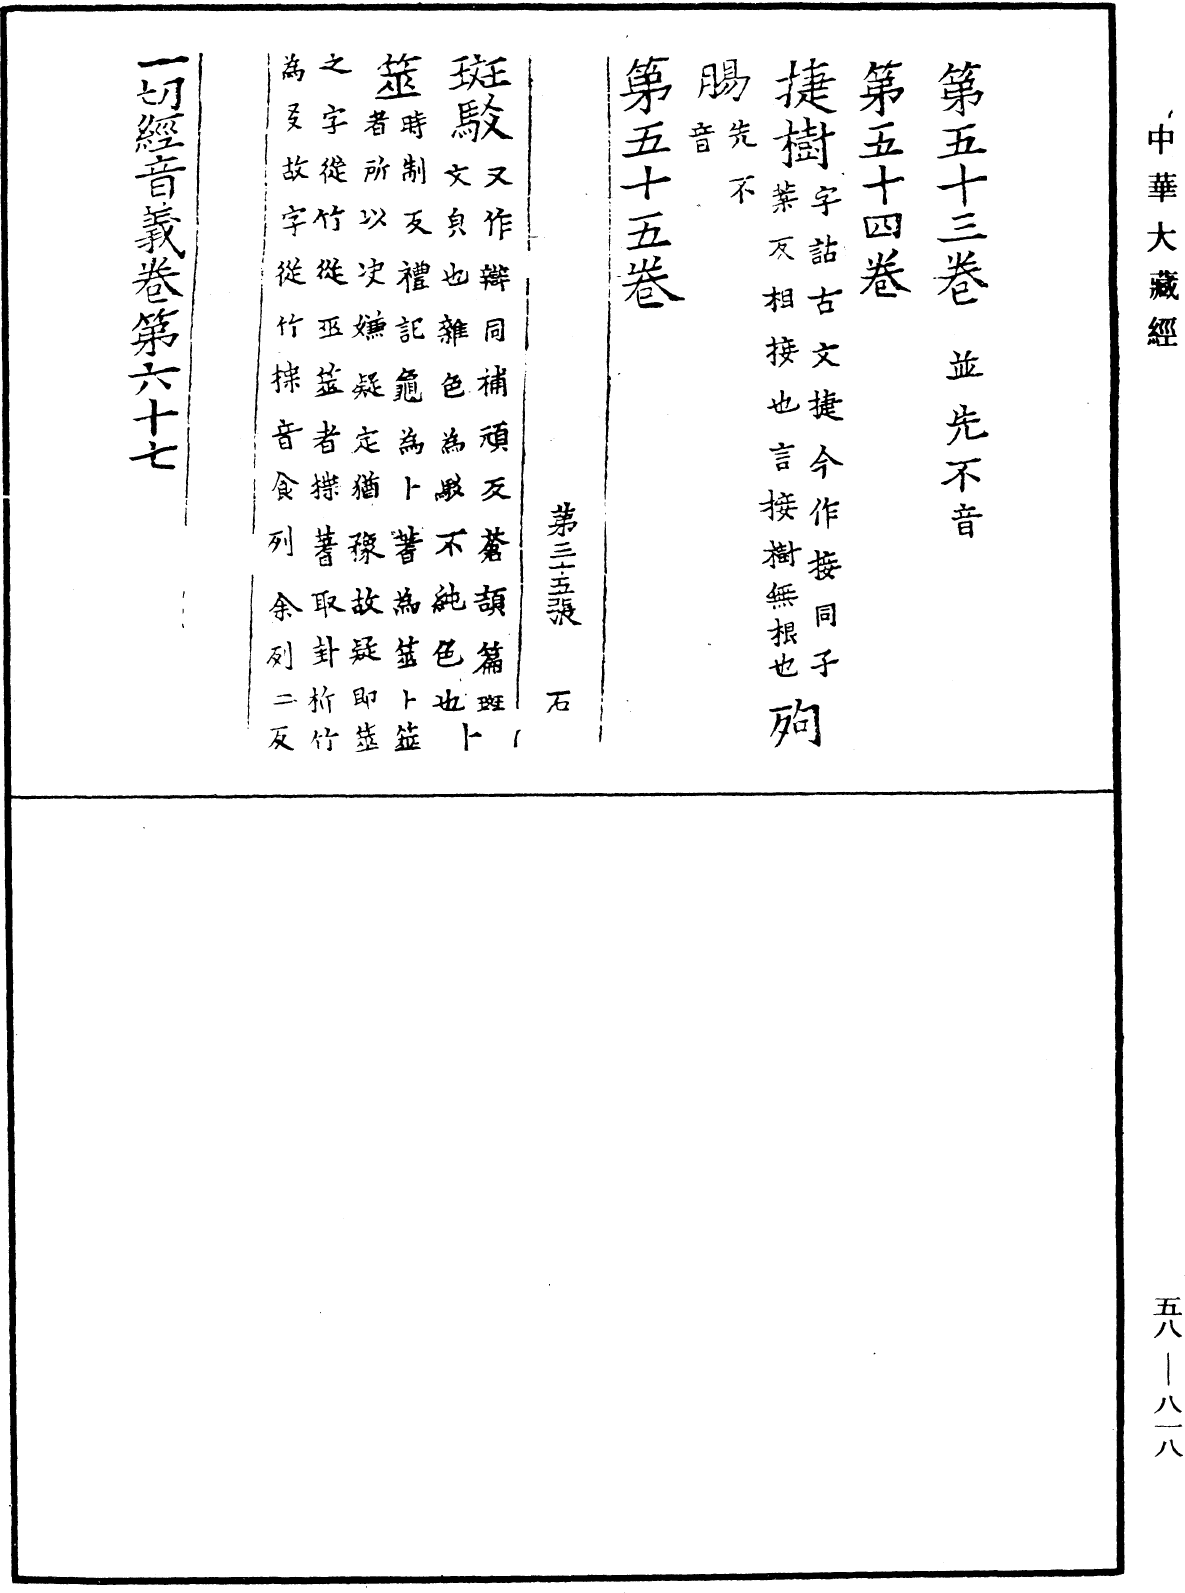 中華大藏經
第五十三卷 並先不音
第五十四卷
捷樹 字詁古文捷今作接同子
葉反相接也言接樹無根也 殉
賜 先不
音
第五十五卷
第三十五張 石
斑駮 又作辬同補頑反蒼頡篇斑
文皃也雜色為駮不純色也 卜
筮 時制反禮記龜為卜蓍為筮卜筮
者所以決嫌疑定猶豫故疑即筮
之字從竹從巫筮者揲蓍取卦折竹
為爻故字從竹揲音食列余列二反
一切經音義卷第六十七
五八—八一八